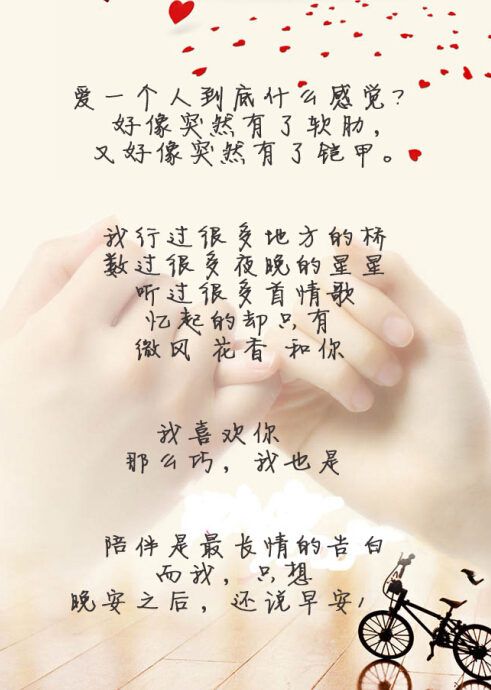 爱一个人到底什么感觉?
好像突然有了软肋,
又好像突然有了铠甲。
我行过很多地方的桥
数过很多夜晚的星星
听过很多首情歌
忆起的却只有
微风 花香 和你
我喜欢你
那么巧, 我也是
陪伴是最长情的告白
而我, 只想
晚安之后, 还说早安!